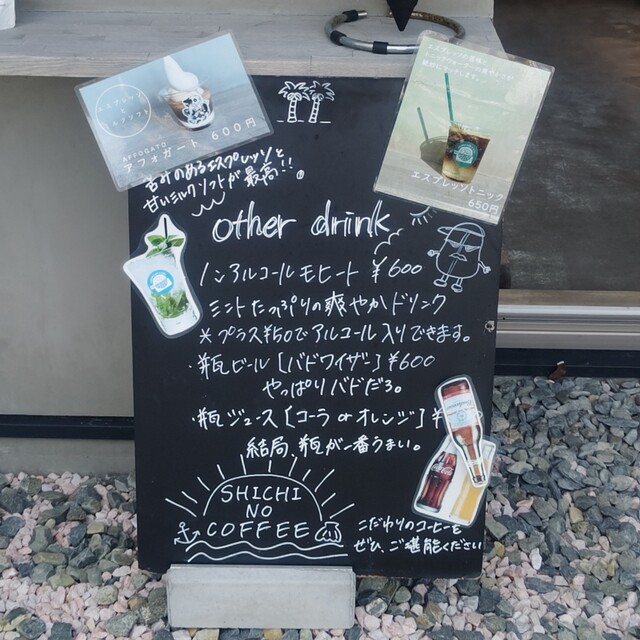 AFFOGATO
アフォガート 600円
エスプレッソトニック
650円
苦汁のあるエスプレッソと
甘いミルクソフトが最高!!
other drink
ノンアルコールモヒート ¥600
ミントたっぷりの爽やかドリンク
*プラス¥50でアルコール入りできます。
・瓶ビール[バドワイザー]¥600
やっぱりバドだろ。
・瓶ジュース[コーラorオレンジ]¥
結局、瓶が一番うまい。
SHICHI
NO
COFFEE
こだわりのコーヒーを
ぜひ、ご堪能ください